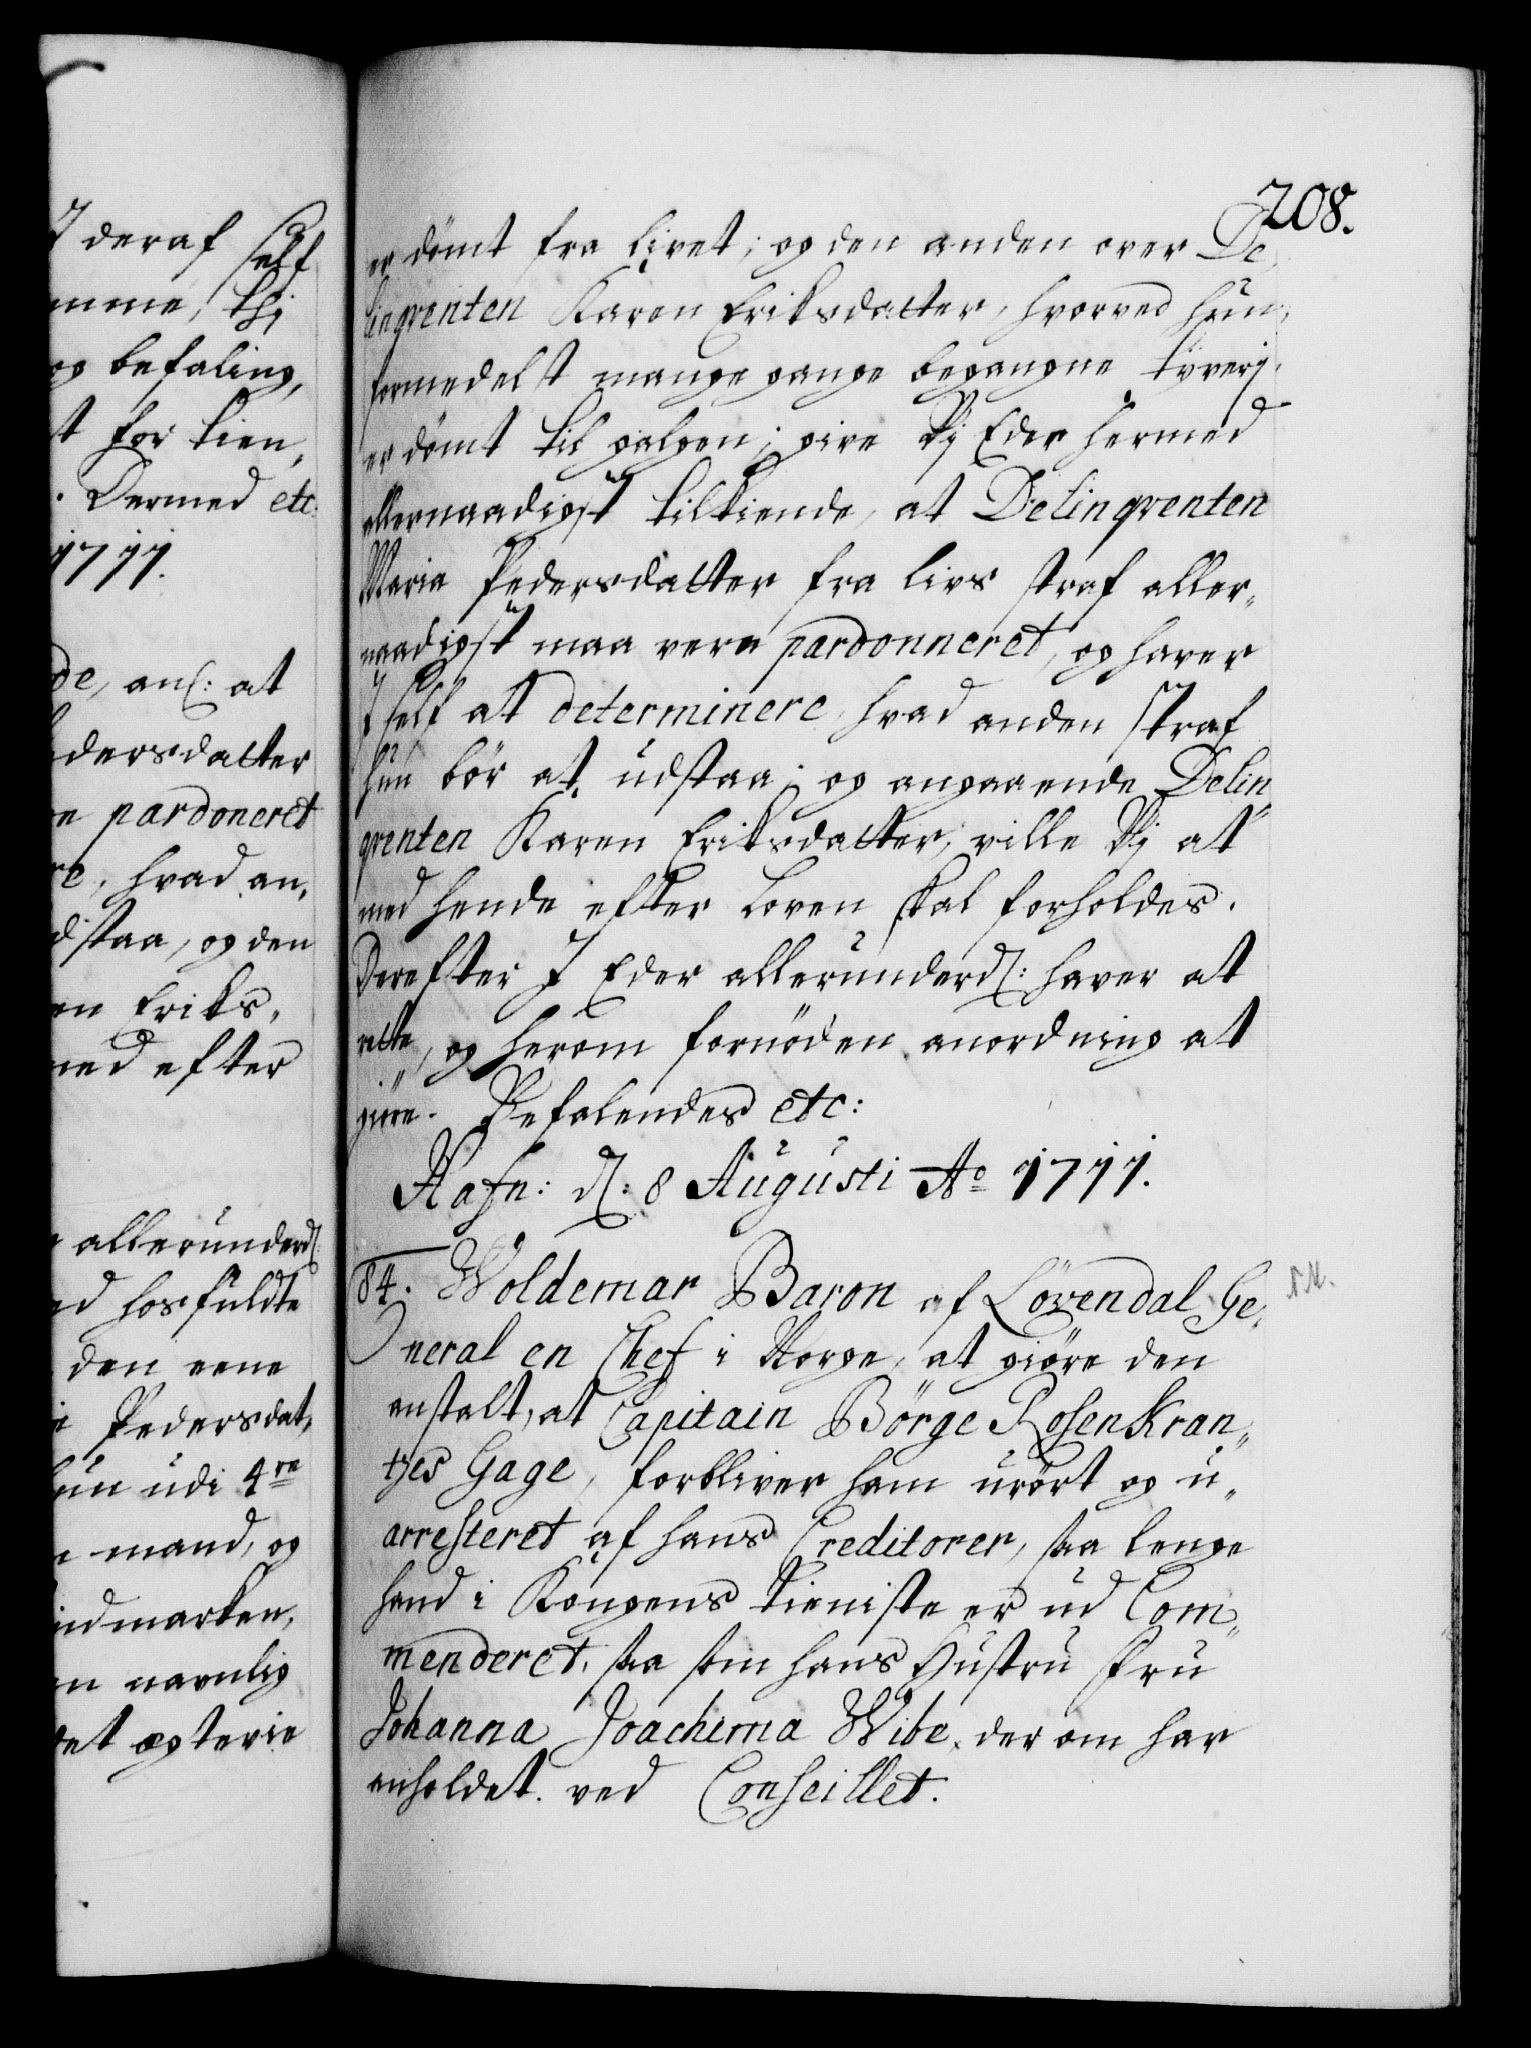 I deraf self
mme, thj
og befaling,
st for tien,
. Dermed etc:
1711.
de, anl: at
dersdatter
e pardoneret
re, hvad an,,
dstaa, og den
en Eriks,,
med efter
allerunderd:
ed hosfuldte
den eene
e Pedersdat,,
hun udi 4re
mand, og
indmarken,
en navnlig
det egterie
208.
er dömt fra livet; og den anden over De,,
linqventen Karen Eriksdatter, hvorved hun,
formedelst mange gange begangne tyverj,
er dömt til galgen; give Vj Eder hermed
allernaadigst tilkiende, at Delinqventen
Marie Pedersdatter fra livs straf aller,,
naadigst maa vere pardonneret, og haver
I self at determinere, hvad anden straf
hun bör at udstaa; og angaaende Delin,,
qventen Karen Eriksdatter, ville Vj at
med hende efter Loven skal forholdes.
Derefter I Eder allerunderd: haver at
rette, og herom fornöden anordning at
give. Befalendes etc:
Hafn: d: 8 Augusti Ao 1711.
84. Woldemar Baron af Lövendal Ge,,
neral en Chef i Norge, at giöre den
anstalt, at Capitain Börge Rosenkran,,
tzes Gage, forbliver ham urört og u,,
arresteret af hans Creditorer, saa lenge
hand i Kongens tieniste er ud Com,,
menderet, saa som hans Hustru Fru
Johanna Joachima Wibe, der om har
anholdet ved Conseillet.